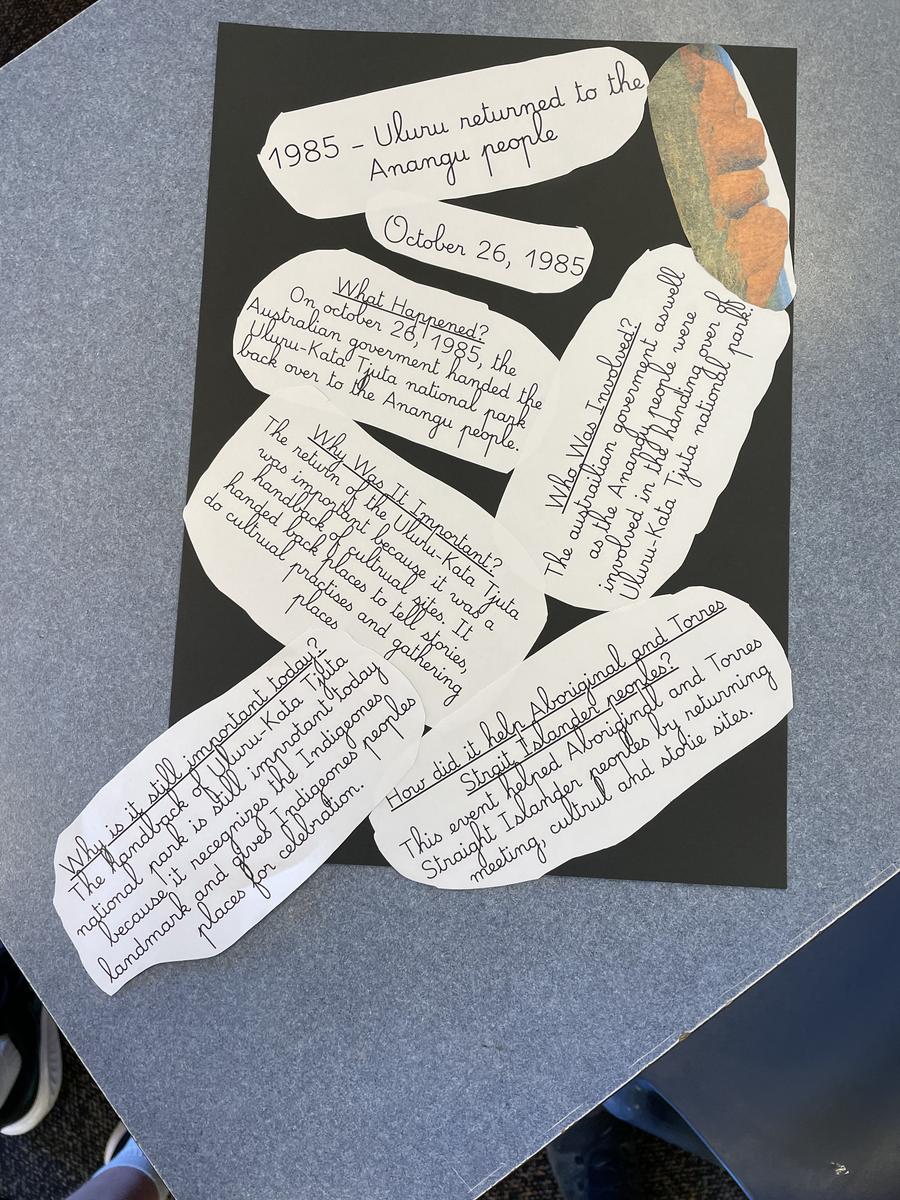 1985 - Uluru returned to the
Anangu people
October 26, 1985
What Happened?
On october 26, 1985, the
Australian goverment handed the
Uluru-Kata Tjuta national park
back over to the Anangu people.
Who Was Involved?
The austrailian goverment aswell
as the Anangu people were
involved in the handing over of
Uluru-Kata Tjuta national park.
Why Was It Important?
The return of the Uluru-Kata Tjuta
was important because it was a
handback of cultrual sites. It
handed back places to tell stories,
do cultrual practises and gathering
places
How did it help Aboriginal and Torres
Strait Islander peoples?
This event helped Aboriginal and Torres
Straight Islander peoples by returning
meeting, cultrul and storie sites.
Why is it still important today?
The handback of Uluru-Kata Tjuta
national park is still improtant today
because it recegnizes thd Indigeones
landmark and gives Indigeones peoples
places for celebration.